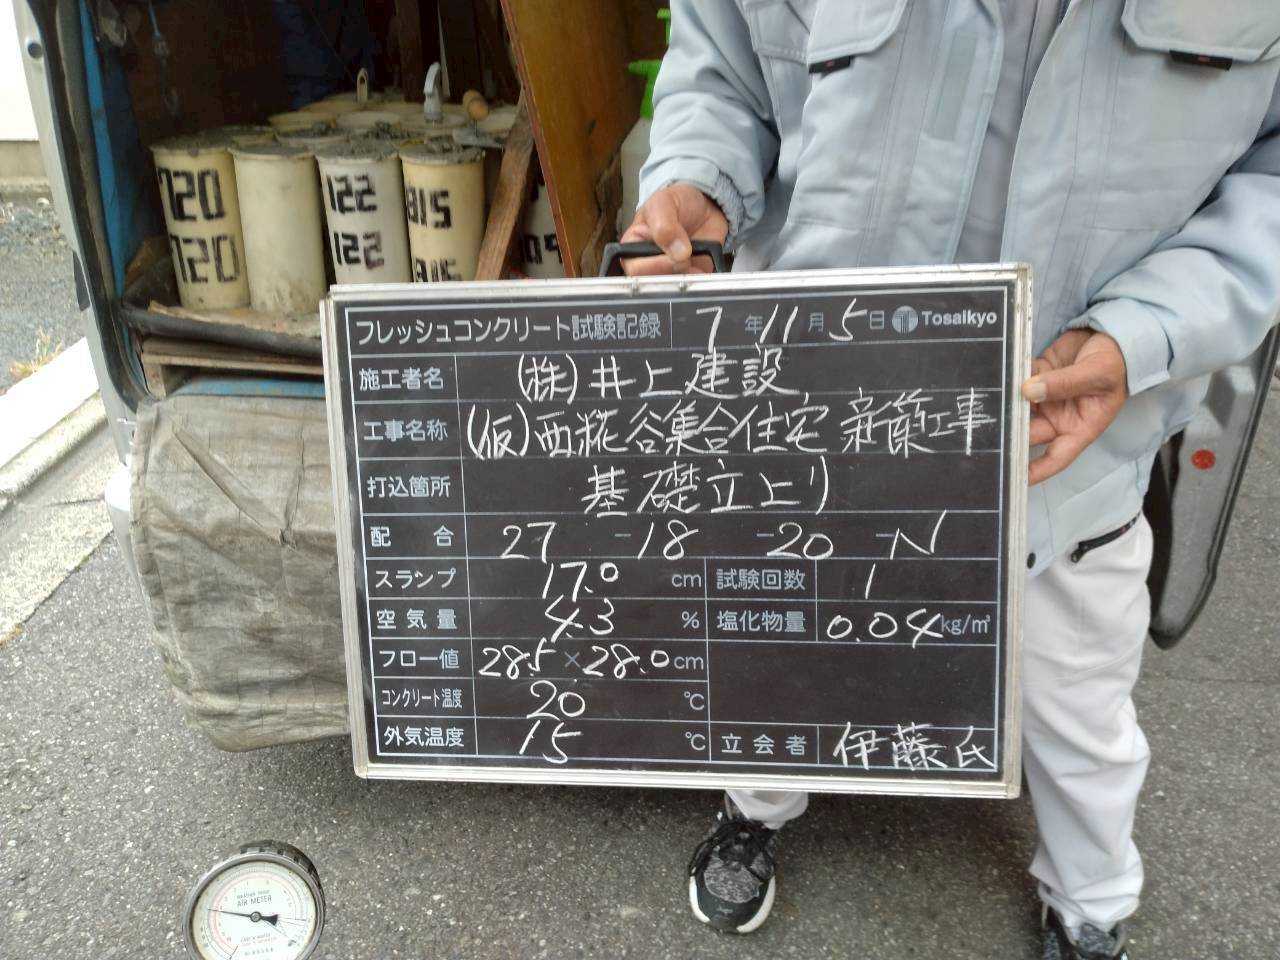 720
720
122
122
815
815
09
フレッシュコンクリート試験記録 7年11月5日 Tosaikyo
施工者名 (株)井上建設
工事名称 (仮)西糀谷集合住宅新築工事
打込箇所 基礎立上り
配合 27 -18 -20 -N
スランプ 17.0 cm 試験回数 1
空気量 4.3 % 塩化物量 0.04 kg/m³
フロー値 28.5 × 28.0 cm
コンクリート温度 20 ℃
外気温度 15 ℃ 立会者 伊藤氏
AIR METER